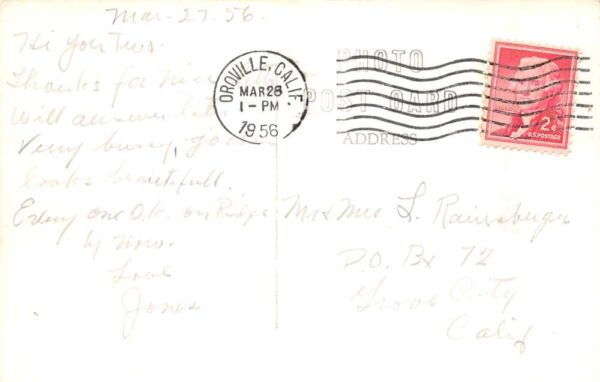 Mar-27-56-
Hi You Two.
Thanks for nice
Will answer
Very busy,
looks beautifull.
Every one O.K. on Ridge
by now.
Love
Jones
OROVILLE, CALIF.
MAR 28
1-PM
1956
PHOTO
POST CARD
ADDRESS
2¢
U.S. POSTAGE
Mr & Mrs L. Rainsbarger
P.O. Bx 72
Grove City
Calif